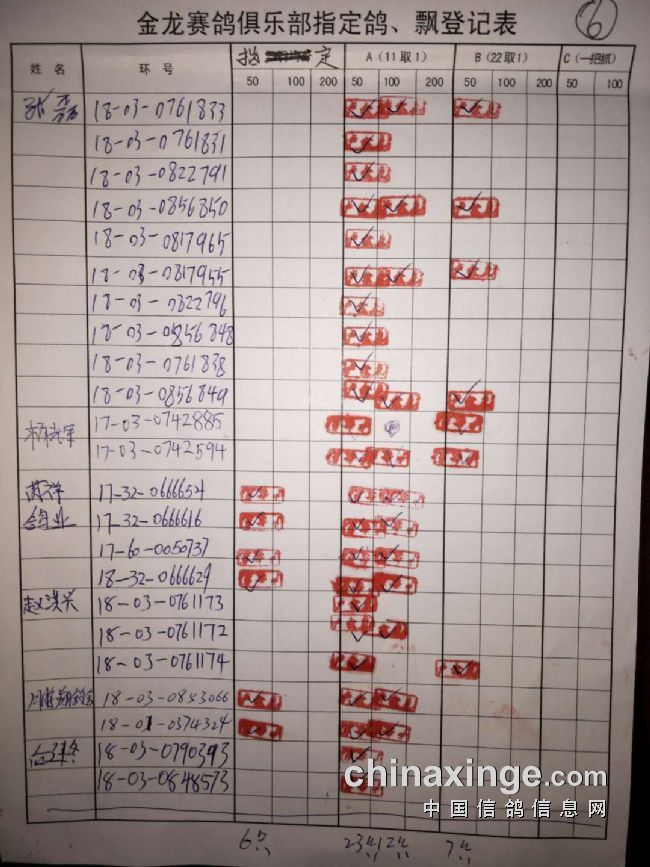 金龙赛鸽俱乐部指定鸽、飘登记表
6
姓名 环号 指 定 A（11取1） B（22取1） C（一把抓）
50 100 200 50 100 200 50 100 200 50 100
张磊 18-03-0761833
18-03-0761831
18-03-0822791
18-03-0856850
18-03-0817965
18-03-0817955
18-03-0822796
18-03-0856848
18-03-0761838
18-03-0856849
17-03-0742885
17-03-0742594
17-32-0666654
鸽业 17-32-0666616
17-60-0050737
18-32-0666629
赵洪兴 18-03-0761173
18-03-0761172
18-03-0761174
18-03-0853066
18-01-0374324
18-03-0790393
18-03-0848573
chinaxinge.com
中国信鸽信息网